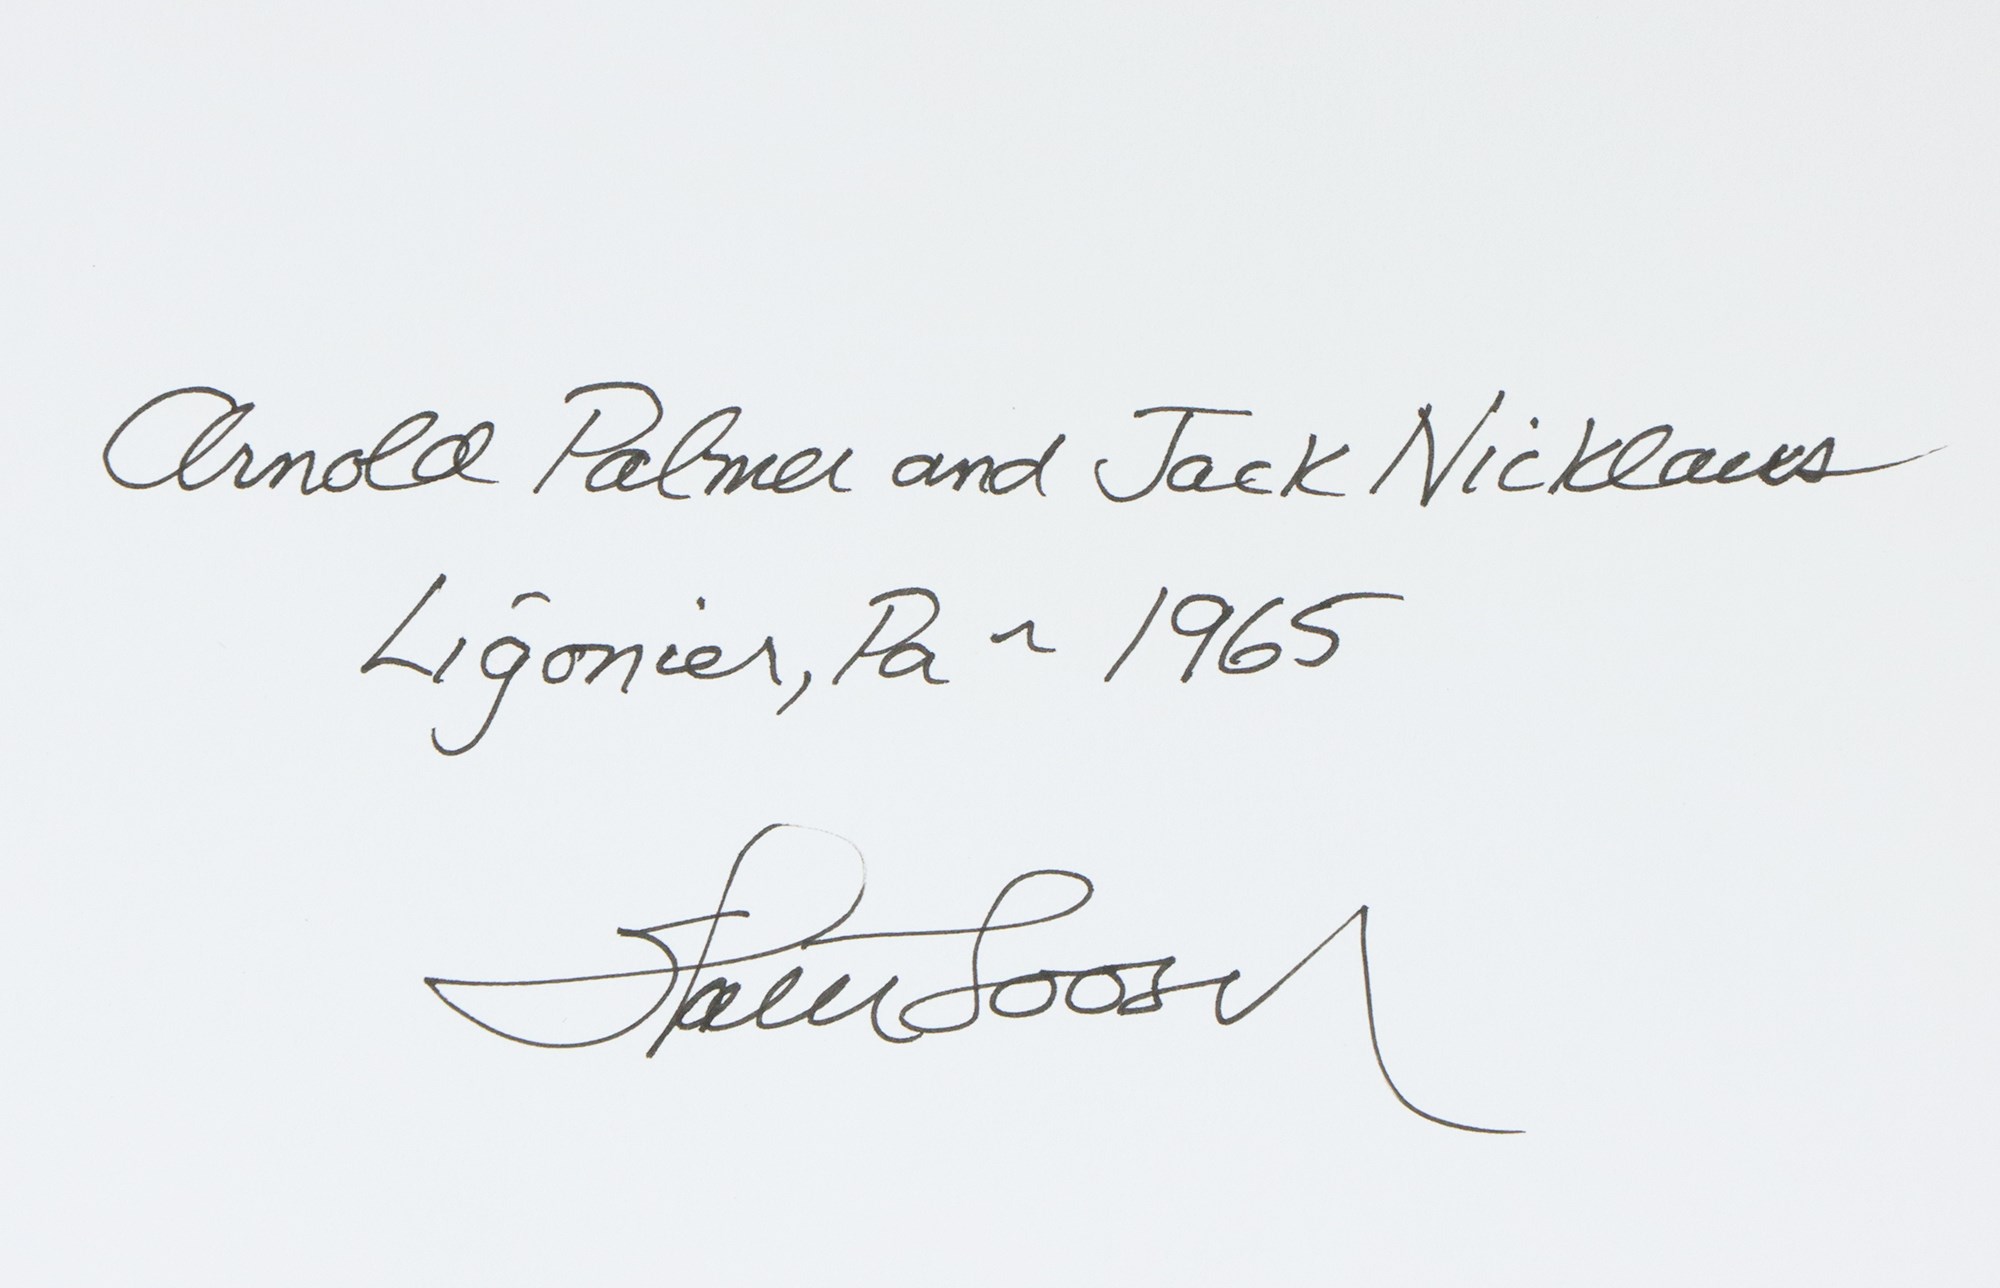 Arnold Palmer and Jack Nicklaus
Ligonier, Pa ~ 1965